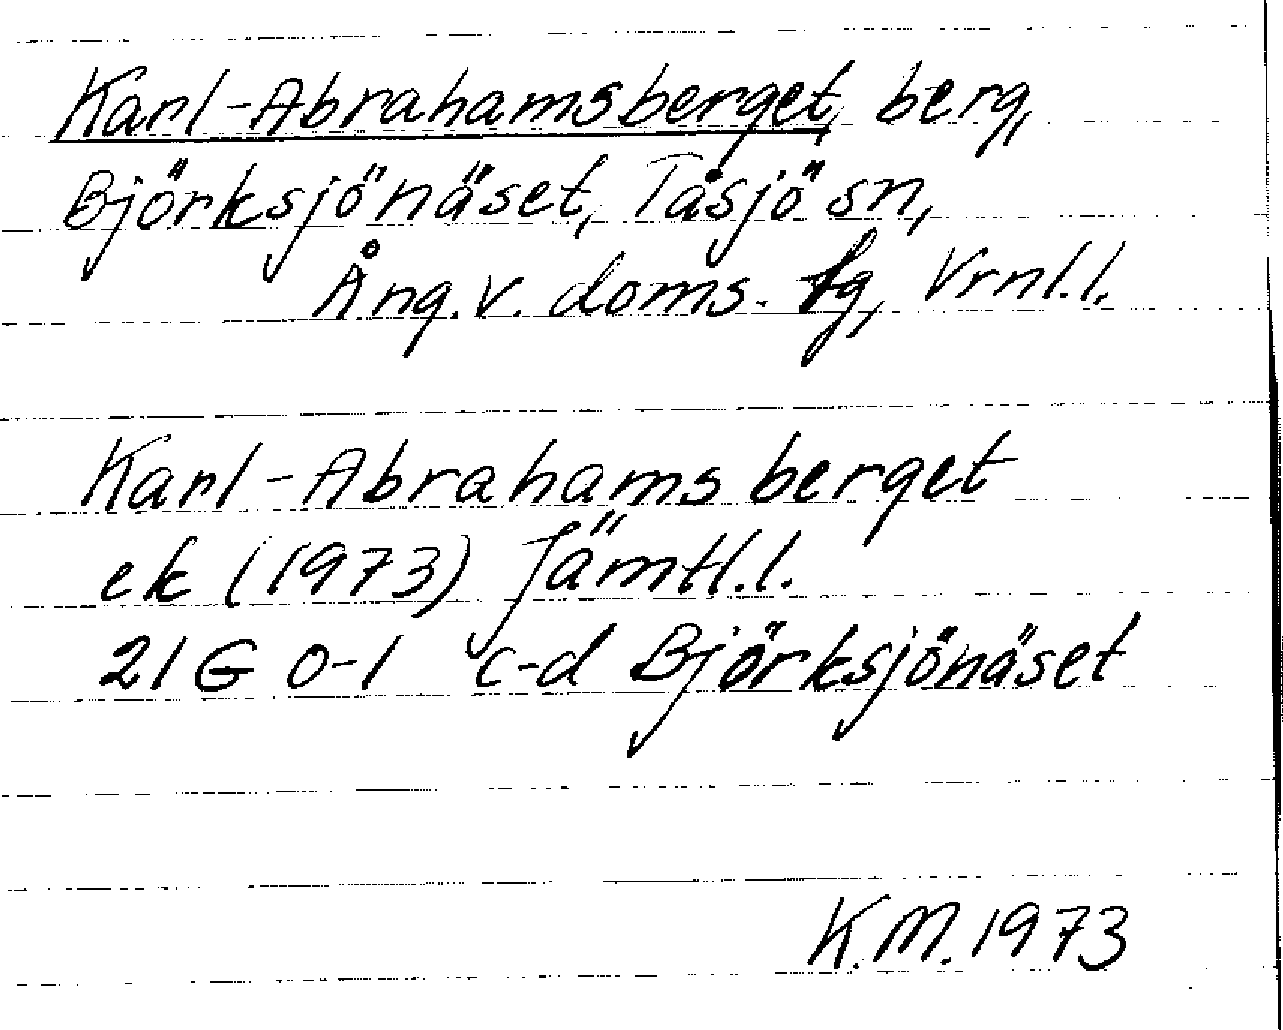 Karl-Abrahamsberget, berg,
Björksjönäset, Tåsjö sn,
Ång. v. doms. fg, Vrnl.l.
Karl-Abrahamsberget
ek (1973) Jämtl.l.
21 G 0-1 c-d Björksjönäset
K.M. 1973